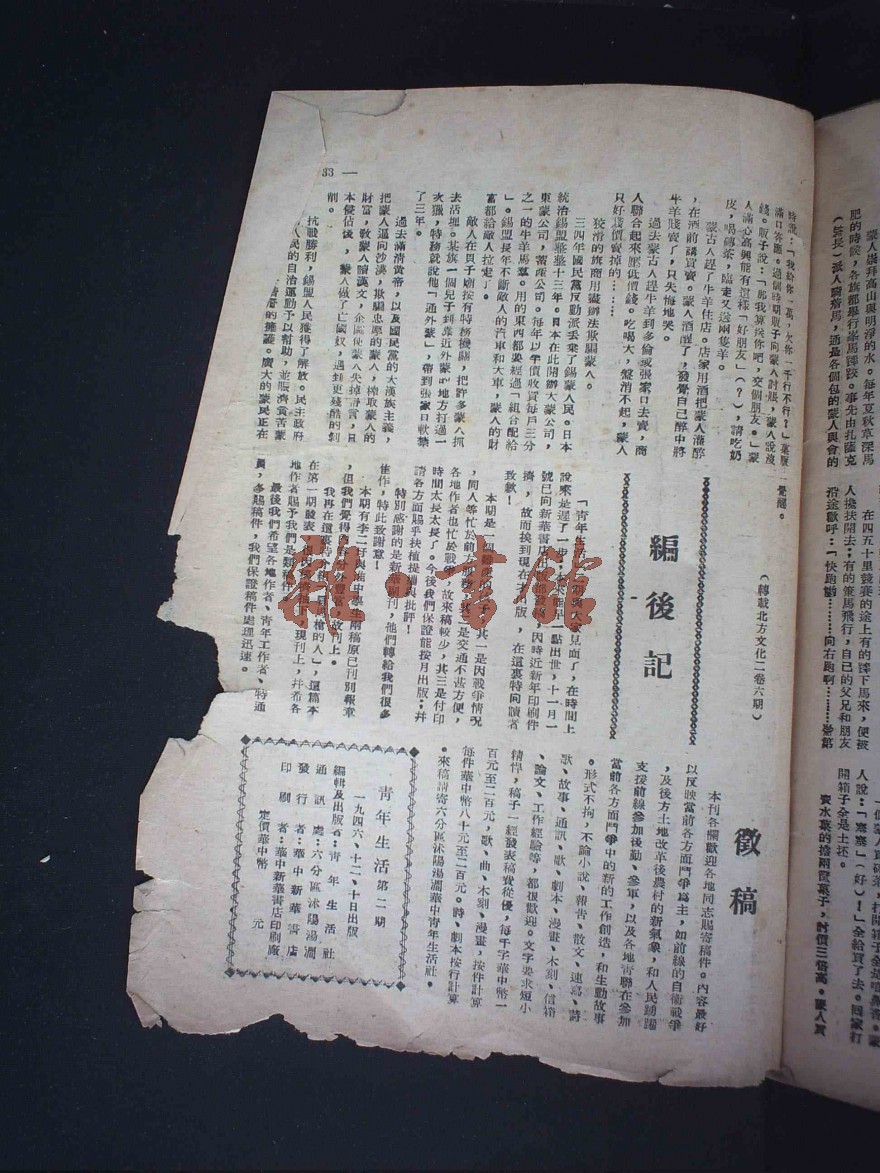 33 —
特說：「我給你一萬，欠你一千行不行？」蒙販
滿口答應。過個時期販子向蒙人討賬，蒙人說沒
錢。販子說：「那我算送你吧，交個朋友。」蒙
人滿心高興能有這樣「好朋友」（？），請吃奶
皮，喝磚茶，臨走又送兩隻羊。
蒙古人趕了牛羊住店。店家用酒把蒙人灌醉
，在酒前講買賣。蒙人酒醒了，發覺自己醉中將
牛羊賤賣了，只失悔地哭。
過去蒙古人趕了牛羊到多倫或張家口去賣，商
人聯合起來壓低價錢。吃喝大，盤消不起，蒙人
只好賤價賣掉的……
狡滑的旗商用盡辦法欺騙蒙人。
三四年國民黨反動派丟棄了錫蒙人民。日本
統治錫盟整整十三年。日本在此開辦大蒙公司，
東蒙公司，蓄產公司。每年以半價收買每戶三分
之一的牛羊馬羣。用的東西都要經過「組合配給
」。錫盟長年不斷敵人的汽車和大車，蒙人的財
富都給敵人拉走了。
敵人在貝子廟按有特務機關，把許多蒙人抓
去活埋。某旗一個兒子到靠近外蒙的地方打過一
次獵，特務就說他「通外蒙」，帶到張家口軟禁
了三年。
過去滿清黄帝，以及國民黨的大漢族主義，
把蒙人逼向沙漠，欺騙忠厚的蒙人，搾取蒙人的
財富，敎蒙人讀漢文，企圖使蒙人失掉語言，日
本侵佔後，蒙人做了亡國奴，遇到更殘酷的剝
削。
抗戰勝利，錫盟人民獲得了解放。民主政府
人民的自治運動予以幫助，並賑濟貧苦蒙
的擁護。廣大的蒙民正在
覺醒。
（轉載北方文化二卷六期）
編後記
「青年生活」
說來是遲了一步
號已向新華書店
擠，故而挨到現在才出版，在這裏特向讀者
致歉！
本期是一個
，同人等忙於前
各地作者也忙於戰爭，故來稿較少，其三是付印
時間太長太長了。今後我們保證能按月出版：并
請各方面賜乎扶植提攜與批評！
特別感謝的是新華副刊，他們轉給我們很多
佳作，特此致謝意！
本期有李二
，但我們覺得
我再在這裏特
在第一期發表
地作者賜予我們是類稿件。
最後我們希望各地作者、青年工作者、特通
員，多賜稿件，我們保證稿件處理迅速。
徵稿
本刊各欄歡迎各地同志賜寄稿件。內容最好
以反映當前各方面鬥爭爲主，如前線的自衛戰爭
，及後方土地改革後農村的新氣象，和人民踴躍
支援前線參加後勤、參軍，以及各地青聯在參加
當前各方面鬥爭中的新的工作創造，和生動故事
。形式不拘，不論小說、報告、散文、速寫、詩
歌、故事、通訊、歌、劇本、漫畫、木刻、信箱
、論文、工作經驗等，都很歡迎。文字要求短小
精悍，稿子一經發表稿費從優，每千字華中幣一
百元至二百元，歌、曲、木刻、漫畫，按件計算
每件華中幣八十元至二百元。詩、劇本按行計算
。來稿請寄六分區沭陽湯澗華中青年生活社。
青年生活第二期
一九四六、十二、十日出版
編輯及出版者：青年生活社
通訊處：六分區沭陽湯澗
發行者：華中新華書店
印刷者：華中新華書店印刷廠
定價華中幣　　元
蒙人崇拜高山與明淨的水。每年夏秋草深馬
肥的時候，各旗都舉行賽馬踩跤。事先由扎薩克
（旗長）派人
在四五十里競賽的途上有的踩下馬來，便被
人擡扶開去：有的策馬飛行，自己的父兄和朋友
沿途歡呼：「快跑
人說：「賽賽」（好）！」全給買了去。回家打
開箱子全是土坯。